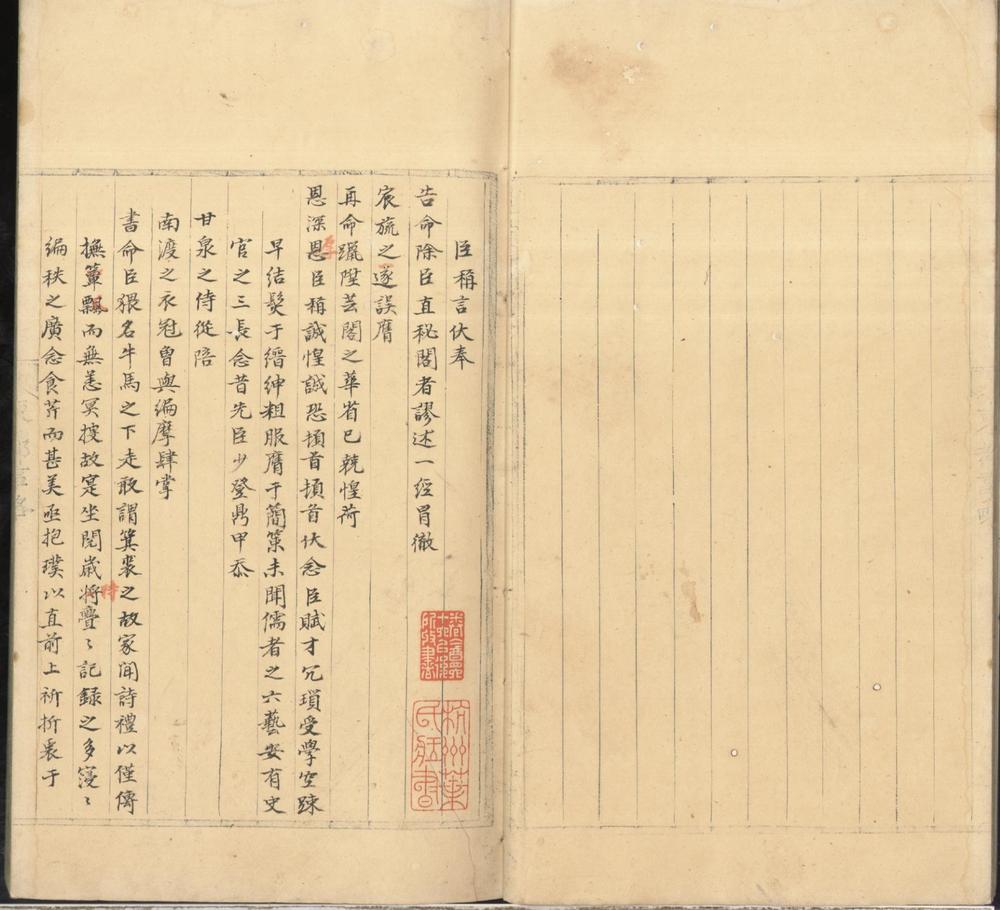 臣稱言伏奉
告命除臣直秘閣者謬述一經冐徹
宸旒之邃誤膺
再命躐陞芸閣之華省已兢惶荷
恩深恩臣稱誠惶誠恐頓首頓首伏念臣賦才冗瑣受學空踈
早結髮于縉紳粗服膺于簡策未聞儒者之六藝安有史
官之三長念昔先臣少登鼎甲忝
甘泉之侍從陪
南渡之衣冠曾與編摩肆掌
書命臣猥名牛馬之下走敢謂箕裘之故家聞詩禮以僅傳
撫簞飄而無恙冥搜故寔坐閱歲將亹〻記録之多寖〻
編秩之廣念食芹而甚美亟抱璞以直前上祈折衷于
杭州葉
氏藏書